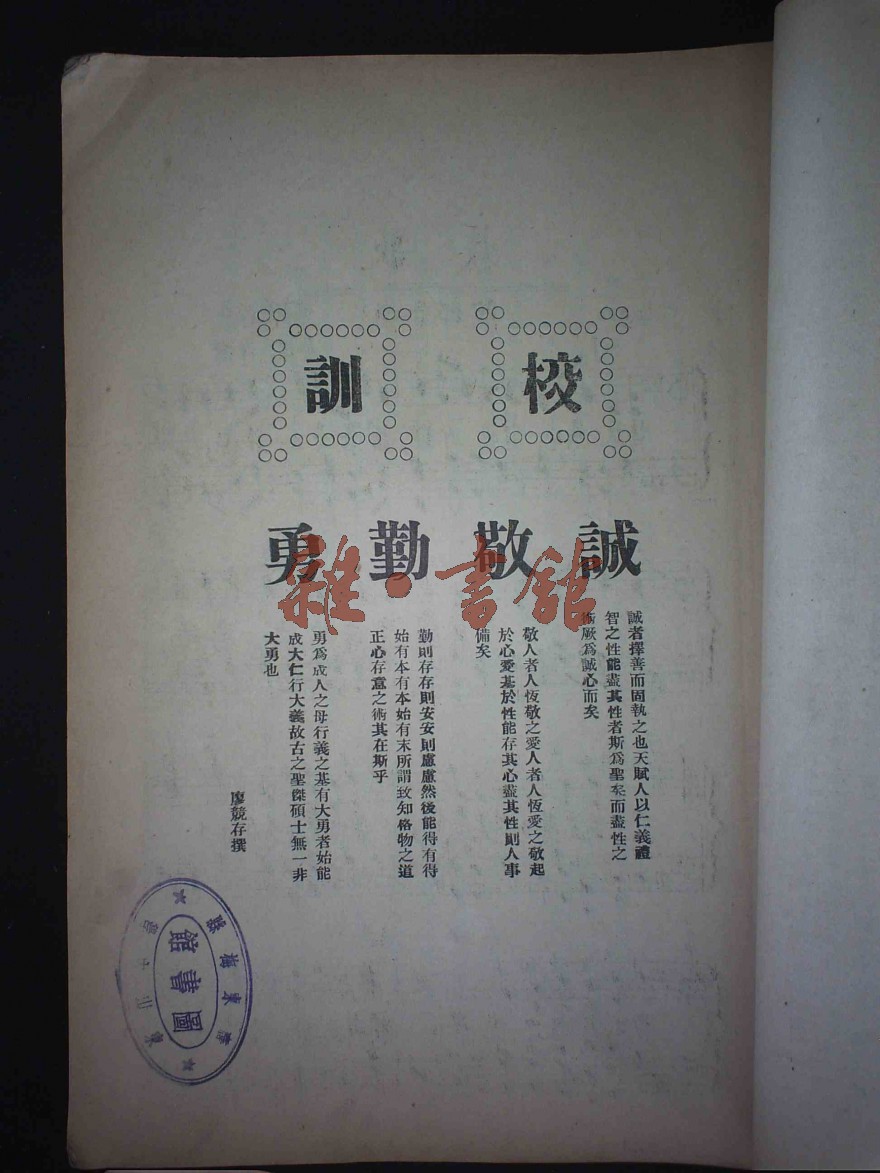 校訓
誠敬勤勇
誠者擇善而固執之也天賦人以仁義禮
智之性能盡其性者斯爲聖矣而盡性之
術厥爲誠心而矣
敬人者人恆敬之愛人者人恆愛之敬起
於心愛基於性能存其心盡其性則人事
備矣
勤則存存則安安則慮慮然後能得有得
始有本有本始有末所謂致知格物之道
正心存意之術其在斯乎
勇爲成人之母行義之基有大勇者始能
成大仁行大義故古之聖傑碩士無一非
大勇也
廖競存撰
雜·書館
東梅縣
圖書館